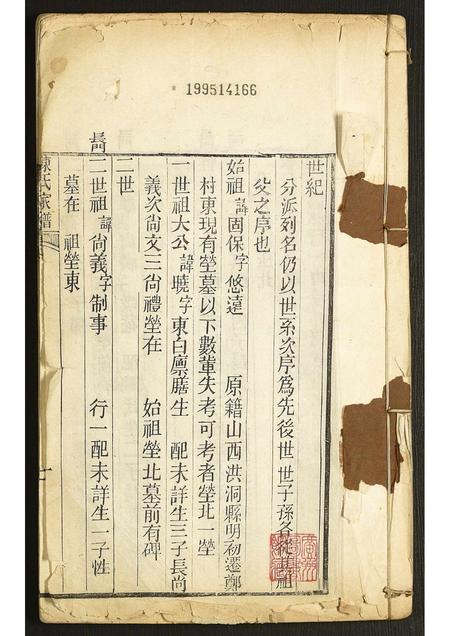 199514166
世紀
分派列名仍以世系次序為先後世世子孫各從其祖
父之序也
始祖諱固保字悠遠 原籍山西洪洞縣明初遷鄭
村東現有塋墓以下數輩失考可考者塋北一塋
一世祖大公諱曉字東白廩膳生 配未詳生三子長尚
義次尚文三尚禮塋在 始祖塋北墓前有碑
二世
長門 二世祖諱尚義字制事 行一配未詳生一子性
墓在 祖塋東
陳氏家譜